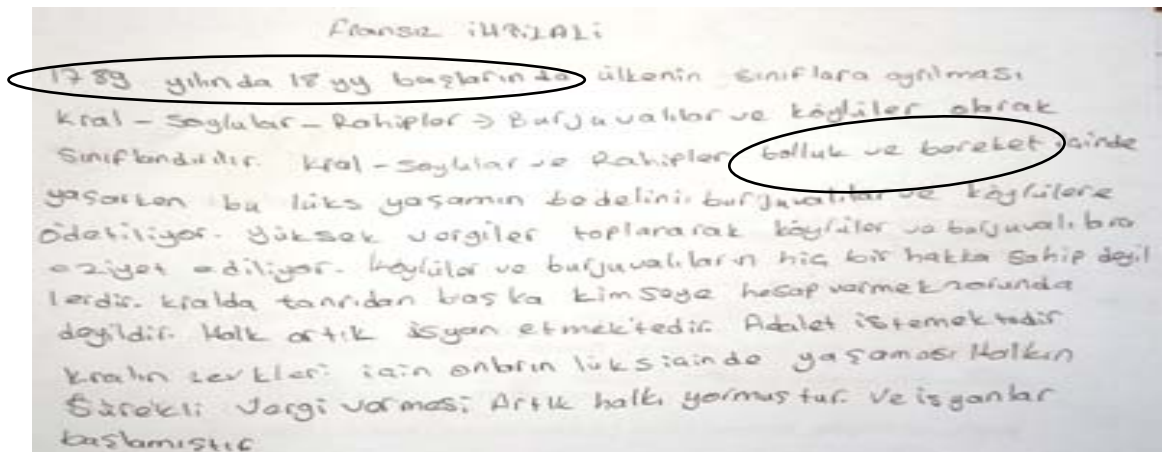 Fransız İHTİLALi
1789 yılında 18 yy başlarında ülkenin sınıflara ayrılması
Kral - Soylular - Rahipler → Burjuvalılar ve köylüler olarak
Sınıflandırılır. Kral - soylular ve Rahipler bolluk ve bereket içinde
yaşarken bu lüks yaşamın bedelini burjuvalılar ve köylülere
ödetiliyor. Yüksek vergiler toplanarak köylüler ve burjuvalılara
eziyet ediliyor. Köylüler ve burjuvalıların hiç bir hakka sahip değil
lerdir. Kralda tanrıdan başka kimseye hesap vermek zorunda
değildir. Halk artık isyan etmek'tedir. Adalet istemektedir
kralın zevkleri için onların lüks içinde yaşaması Halkın
Sürekli Vergi vermesi Artık halkı yormuştur. Ve isyanlar
başlamıştır